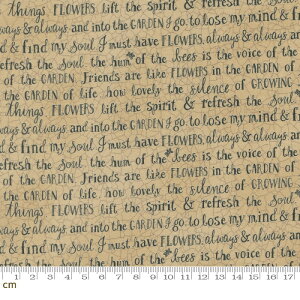 things FLOWERS lift the spirit & refresh the soul
always & always and into the GARDEN I go to lose my mind &
& find my soul I must have FLOWERS, always & always an
refresh the soul the hum of the bees is the voice of the
of the GARDEN. friends are like FLOWERS in the GARDEN of
the GARDEN of life how lovely the silence of GROWING
things FLOWERS lift the spirit & refresh the soul
always & always and into the GARDEN I go to lose my mind &
& find my soul I must have FLOWERS, always & always an
refresh the soul the hum of the bees is the voice of the
of the GARDEN. friends are like FLOWERS in the GARDEN of
the GARDEN of life how lovely the silence of GROWING
things FLOWERS lift the spirit & refresh the soul
always & always and into the GARDEN I go to lose my mind &
& find my soul I must have FLOWERS, always & always an
of the bees is the voice of the
1 2 3 4 5 6 7 8 9 10 11 12 13 14 15 16 17
cm